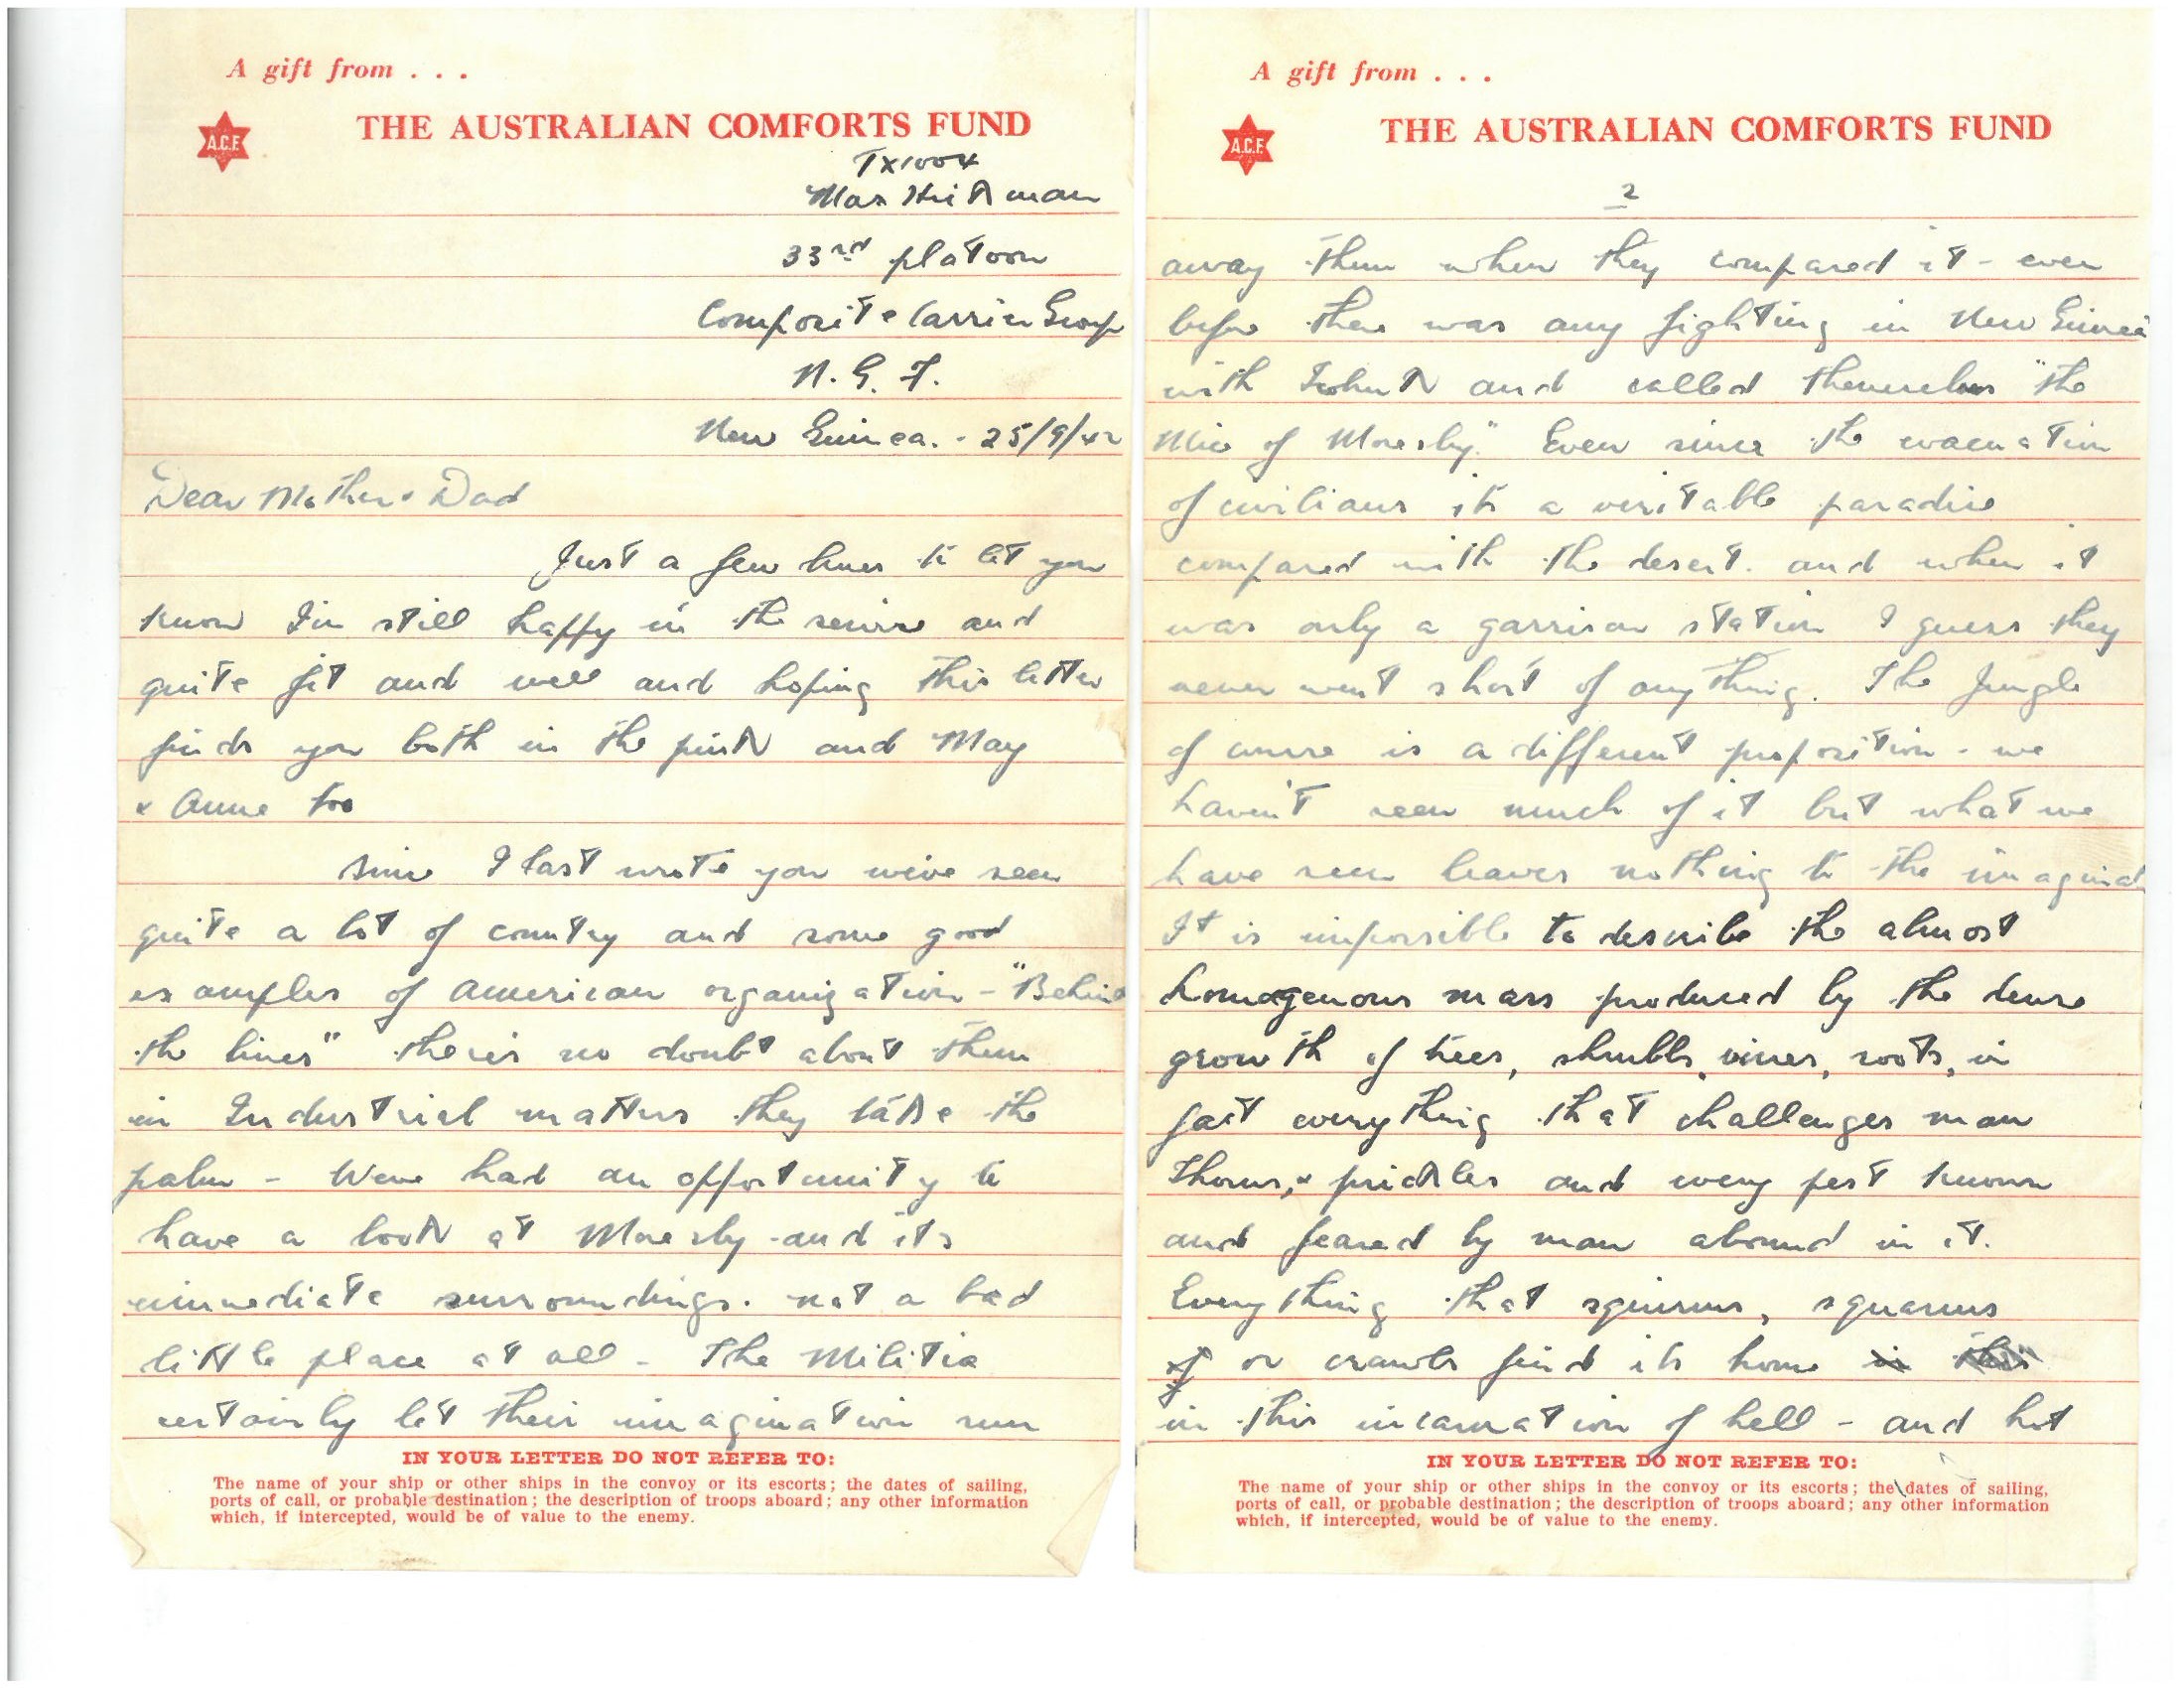 A gift from . . .
A.C.F.
THE AUSTRALIAN COMFORTS FUND
TX1004
Max Hickman
33rd platoon
Composite Carrier Group
N. G. F.
New Guinea. - 25/9/42
Dear Mother & Dad
Just a few lines to let you
know I'm still happy in the service and
quite fit and well and hoping this letter
finds you both in the pink and May
& Anne too
Since I last wrote you we've seen
quite a lot of country and some good
examples of American organization - "Behind
the lines" there's no doubt about them
in Industrial matters they take the
palm - We've had an opportunity to
have a look at Moresby and its
immediate surroundings. not a bad
little place at all - The Militia
certainly let their imagination run
IN YOUR LETTER DO NOT REFER TO:
The name of your ship or other ships in the convoy or its escorts; the dates of sailing,
ports of call, or probable destination; the description of troops aboard; any other information
which, if intercepted, would be of value to the enemy.
A gift from . . .
A.C.F.
THE AUSTRALIAN COMFORTS FUND
2
away them when they compared it - even
before there was any fighting in New Guinea
with Tobruk and called themselves "the
Mice of Moresby." Even since the evacuation
of civilians its a veritable paradise
compared with the desert. and when it
was only a garrison station I guess they
never went short of anything. The Jungle
of course is a different proposition - we
haven't seen much of it but what we
have seen leaves nothing to the imaginat
It is impossible to describe the almost
homogenous mass produced by the dense
growth of trees, shrubbs, vines, roots, in
fact everything that challenges man
Thorns, & prickles and every pest known
and feared by man abound in it.
Everything that squirms, squarms
or crawls find its home in this
in this incarnation of hell - and hot
IN YOUR LETTER DO NOT REFER TO:
The name of your ship or other ships in the convoy or its escorts; the dates of sailing,
ports of call, or probable destination; the description of troops aboard; any other information
which, if intercepted, would be of value to the enemy.